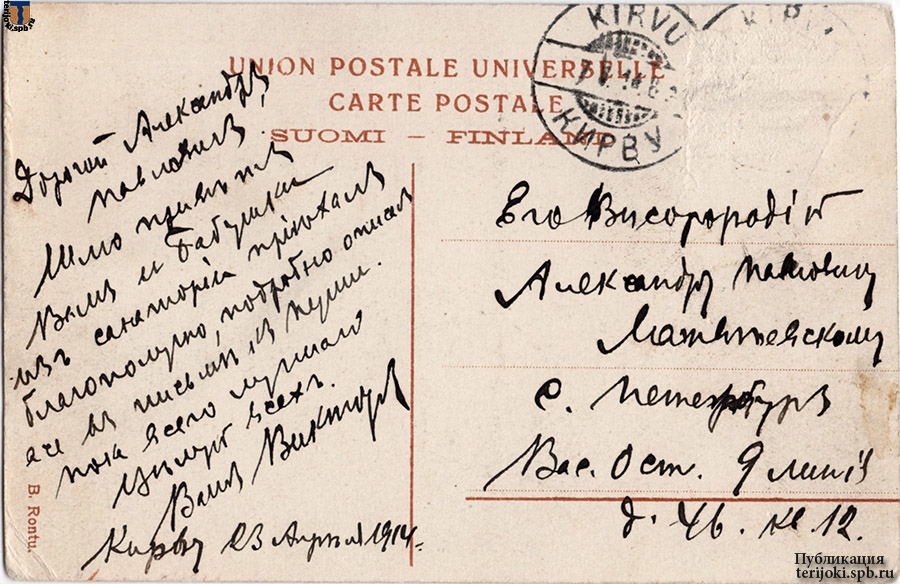 terijoki.spb.ru
UNION POSTALE UNIVERSELLE
CARTE POSTALE
SUOMI – FINLAND
KIRVU
КИРВУ
KIRV
Дорогой Александръ
Павловичъ,
Шлю привѣтъ
Вамъ и Бабушки
изъ санаторіи пріѣхалъ
благополучно, подробно описалъ
все въ письмѣ
пока всего лучшаго
цѣлую всѣхъ.
Вашъ Викторъ
Кирву 23 Апрѣля 1914.
B. Rontu.
Его Высокородію
Александру Павловичу
с. Петербургъ
Вас. Ост. 9 линія
д. 46. кв 12.
Публикация
terijoki.spb.ru